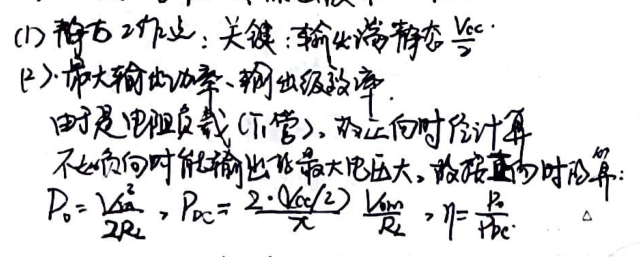 (1) 静态工作点：关键：输出端静态 Vcc/2.
(2). 最大输出功率、输出级效率.
由于是电阻负载(T₁管)，故正向时经计算
不如负向时能输出的最大电压大，故按正向时的算：
P₀ = Vom²/2R_L , P_DC = 2·(Vcc/2)/π Vom/R_L , η = P₀/P_DC.